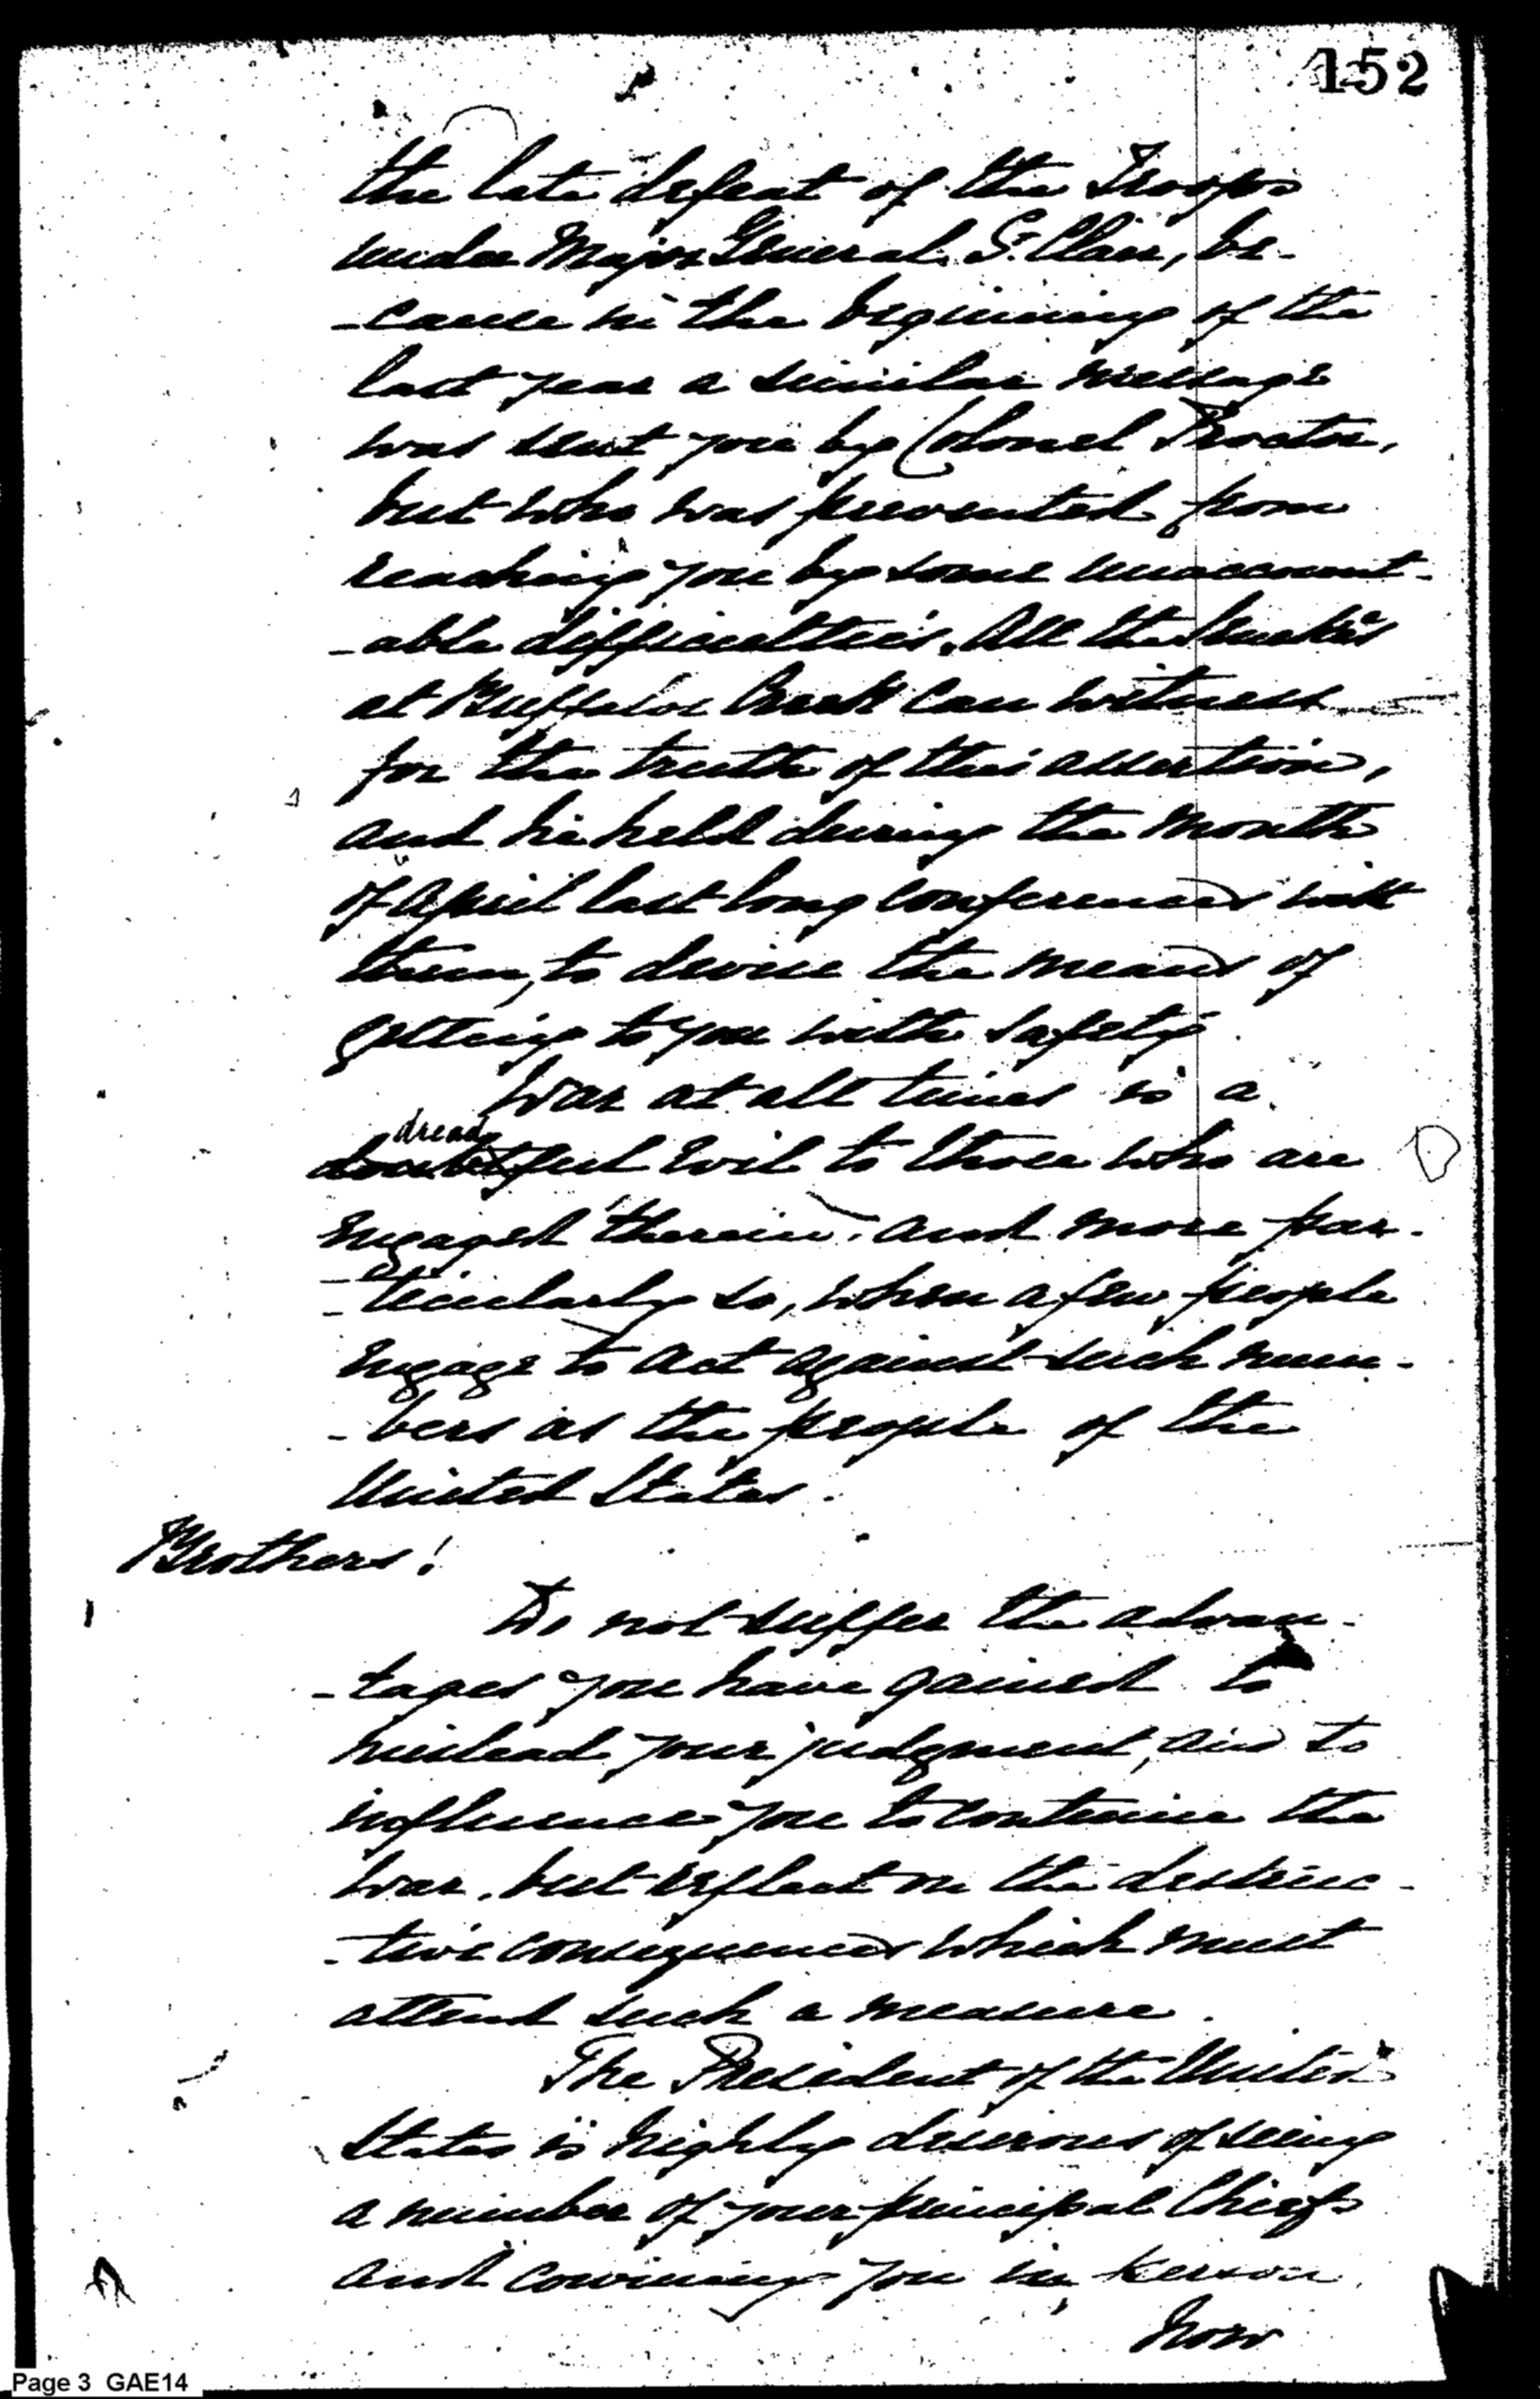 152
the late defeat of the Troops
under Major General St. Clair, be-
-cause in the beginning of the
last year a similar message
was sent you by Colonel Proctor,
but who was prevented from
reaching you by some unaccount-
-able difficulties. All the Senekas
at Buffaloe Creek can witness
for the truth of this assertion,
and he held during the month
of April last long conferences with
them, to devise the means of
getting to you with safety.
War at all times is a
dread
doubtful evil to those who are
engaged therein, and more par-
-ticularly so, when a few people
engage to act against such num-
-bers as the people of the
United States.
Brothers!
Do not suffer the advan-
-tages you have gained to
mislead your judgment, and to
influence you to continue the
war, but reflect on the destruc-
-tive consequences which must
attend such a measure.
The President of the United
States is highly desirous of seeing
a number of your principal Chiefs
and convincing you in person
how
Page 3 GAE14